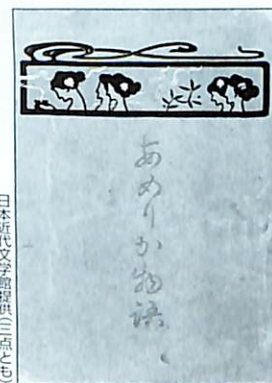 あめりか物語
日本近代文学館提供(三点とも)